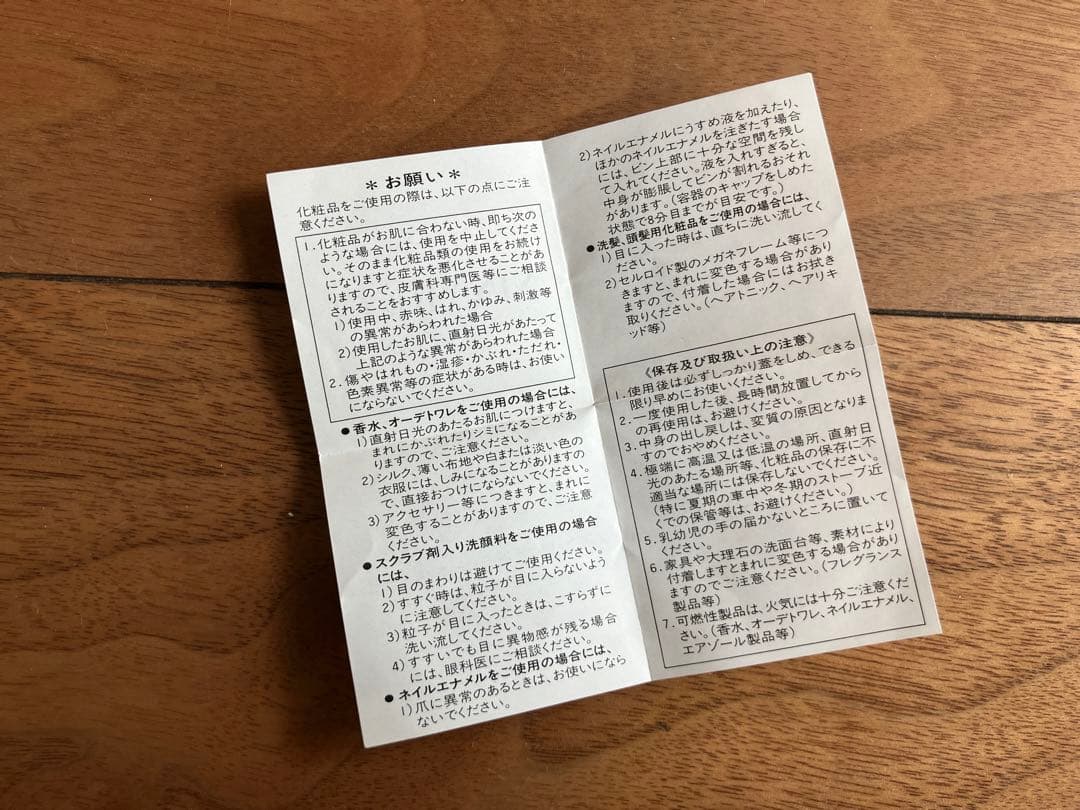 ＊お願い＊
化粧品をご使用の際は、以下の点にご注
意ください。
1. 化粧品がお肌に合わない時、即ち次の
ような場合には、使用を中止してくださ
い。そのまま化粧品類の使用をお続け
になりますと症状を悪化させることがあ
りますので、皮膚科専門医等にご相談
されることをおすすめします。
1) 使用中、赤味、はれ、かゆみ、刺激等
の異常があらわれた場合
2) 使用したお肌に、直射日光があたって
上記のような異常があらわれた場合
2. 傷やはれもの・湿疹・かぶれ・ただれ・
色素異常等の症状がある時は、お使い
にならないでください。
●香水、オーデトワレをご使用の場合には、
1) 直射日光のあたるお肌につけますと、
まれにかぶれたりシミになることがあ
りますので、ご注意ください。
2) シルク、薄い布地や白または淡い色の
衣服には、しみになることがありますの
で、直接おつけにならないでください。
3) アクセサリー等につきますと、まれに
変色することがありますので、ご注意
ください。
●スクラブ剤入り洗顔料をご使用の場合
には、
1) 目のまわりは避けてご使用ください。
2) すすぐ時は、粒子が目に入らないよう
に注意してください。
3) 粒子が目に入ったときは、こすらずに
洗い流してください。
4) すすいでも目に異物感が残る場合
には、眼科医にご相談ください。
●ネイルエナメルをご使用の場合には、
1) 爪に異常のあるときは、お使いになら
ないでください。
2) ネイルエナメルにうすめ液を加えたり、
ほかのネイルエナメルを注ぎたす場合
には、ビン上部に十分な空間を残し
て入れてください。液を入れすぎると、
中身が膨脹してビンが割れるおそれ
があります。（容器のキャップをしめた
状態で8分目までが目安です。）
●洗髪、頭髪用化粧品をご使用の場合には、
1) 目に入った時は、直ちに洗い流してく
ださい。
2) セルロイド製のメガネフレーム等につ
きますと、まれに変色する場合があり
ますので、付着した場合にはお拭き
取りください。（ヘアトニック、ヘアリキ
ッド等）
《保存及び取扱い上の注意》
1. 使用後は必ずしっかり蓋をしめ、できる
限り早めにお使いください。
2. 一度使用した後、長時間放置してから
の再使用は、お避けください。
3. 中身の出し戻しは、変質の原因となりま
すのでおやめください。
4. 極端に高温又は低温の場所、直射日
光のあたる場所等、化粧品の保存に不
適当な場所には保存しないでください。
（特に夏期の車中や冬期のストーブ近
くでの保管等は、お避けください。）
5. 乳幼児の手の届かないところに置いて
ください。
6. 家具や大理石の洗面台等、素材により
付着しますとまれに変色する場合があり
ますのでご注意ください。（フレグランス
製品等）
7. 可燃性製品は、火気には十分ご注意くだ
さい。（香水、オーデトワレ、ネイルエナメル、
エアゾール製品等）